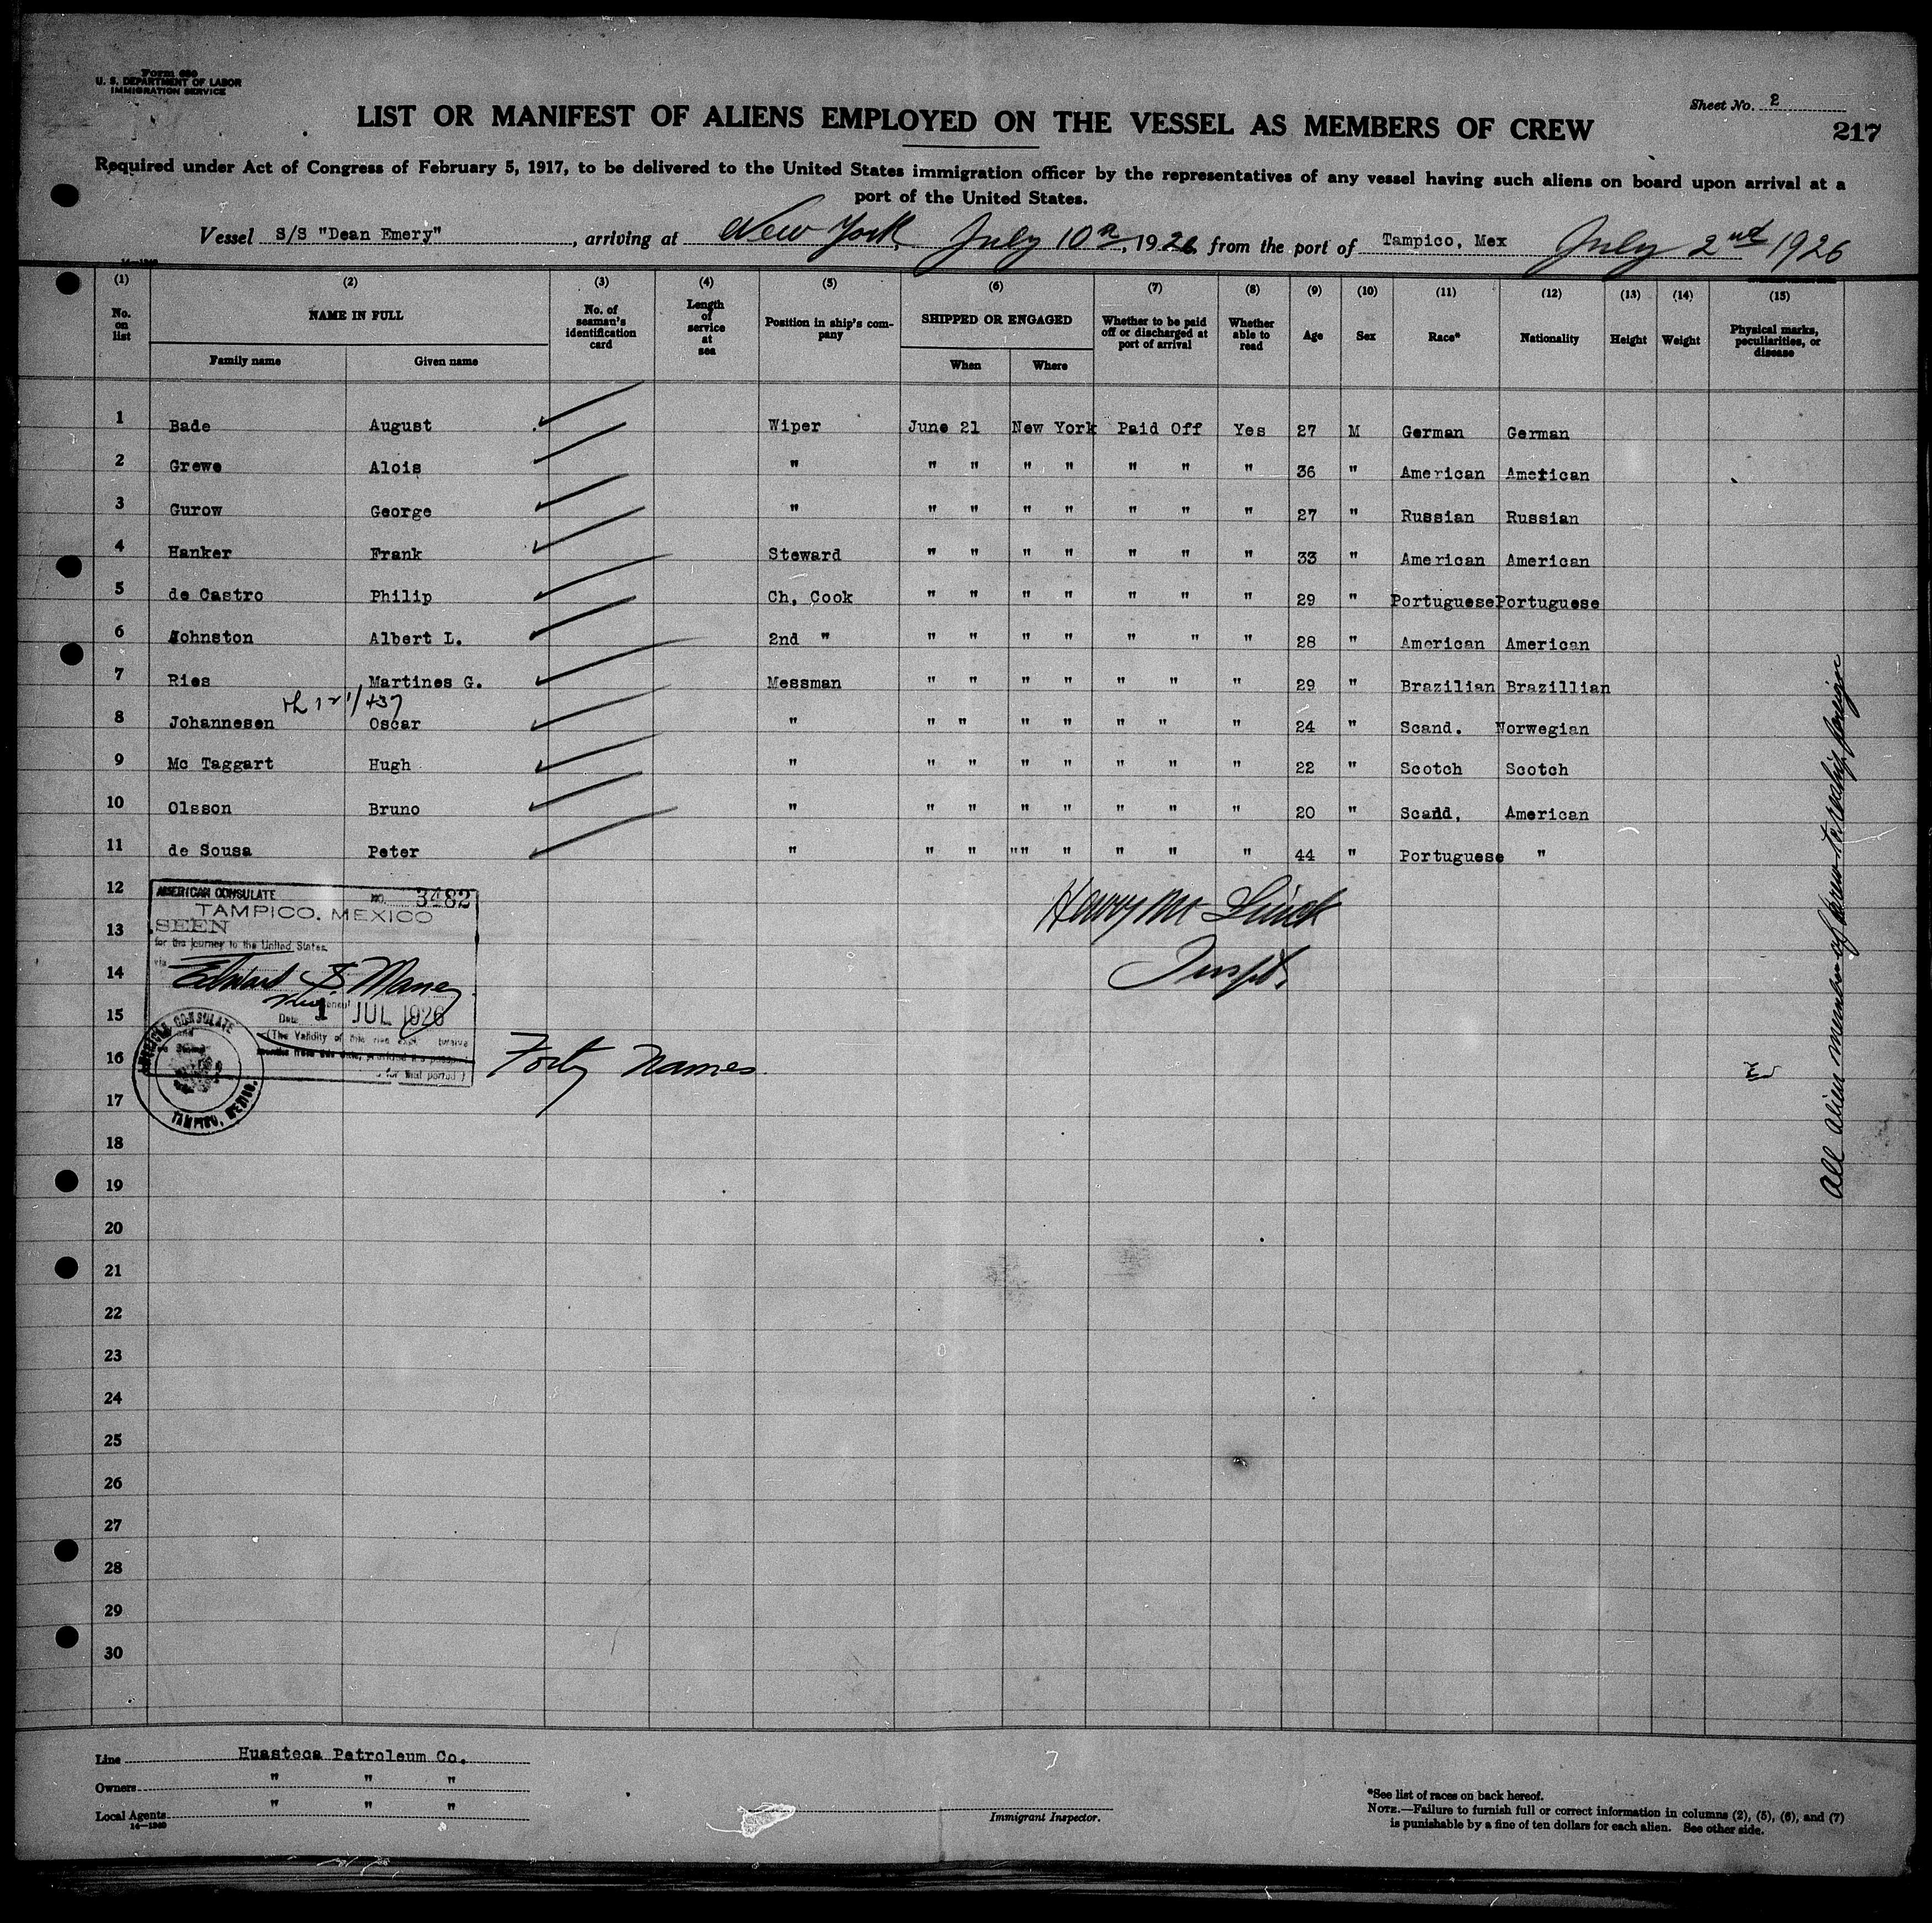 Form 680
U. S. DEPARTMENT OF LABOR
IMMIGRATION SERVICE
Sheet No. 2
LIST OR MANIFEST OF ALIENS EMPLOYED ON THE VESSEL AS MEMBERS OF CREW
217
Required under Act of Congress of February 5, 1917, to be delivered to the United States immigration officer by the representatives of any vessel having such aliens on board upon arrival at a
port of the United States.
Vessel S/S "Dean Emery", arriving at New York July 10th, 1926 from the port of Tampico, Mex July 2nd 1926
(1) (2) (3) (4) (5) (6) (7) (8) (9) (10) (11) (12) (13) (14) (15)
No. on list NAME IN FULL Family name Given name No. of seaman's identification card Length of service at sea Position in ship's company SHIPPED OR ENGAGED When Where Whether to be paid off or discharged at port of arrival Whether able to read Age Sex Race* Nationality Height Weight Physical marks, peculiarities, or disease
1 Bade August Wiper June 21 New York Paid Off Yes 27 M German German
2 Grewe Alois " " " " " " " " 36 " American American
3 Gurow George " " " " " " " " 27 " Russian Russian
4 Hanker Frank Steward " " " " " " " 33 " American American
5 de Castro Philip Ch, Cook " " " " " " " 29 " Portuguese Portuguese
6 Johnston Albert L. 2nd " " " " " " " " 28 " American American
7 Ries Martines G. Messman " " " " " " " 29 " Brazilian Brazillian
8 Johannesen Oscar " " " " " " " " 24 " Scand. Norwegian
9 Mc Taggart Hugh " " " " " " " " 22 " Scotch Scotch
10 Olsson Bruno " " " " " " " " 20 " Scand, American
11 de Sousa Peter " " " "" " " " " 44 " Portuguese "
12
13
14
15
16
17
18
19
20
21
22
23
24
25
26
27
28
29
30
AMERICAN CONSULATE
No. 3482
TAMPICO, MEXICO
SEEN
for the journey to the United States.
via
Edward S. Maney
Consul
Date 1 JUL 1926
(The Validity of this visa twelve
months from this date, provided the passport
for that period)
AMERICAN CONSULATE
TAMPICO, MEXICO.
Forty Names
Harry M
Inspt.
All alien members of crew to reship foreign
Line Huasteca Petroleum Co.
Owners " " "
Local Agents " " "
14—1240
Immigrant Inspector.
*See list of races on back hereof.
NOTE.—Failure to furnish full or correct information in columns (2), (5), (6), and (7)
is punishable by a fine of ten dollars for each alien. See other side.